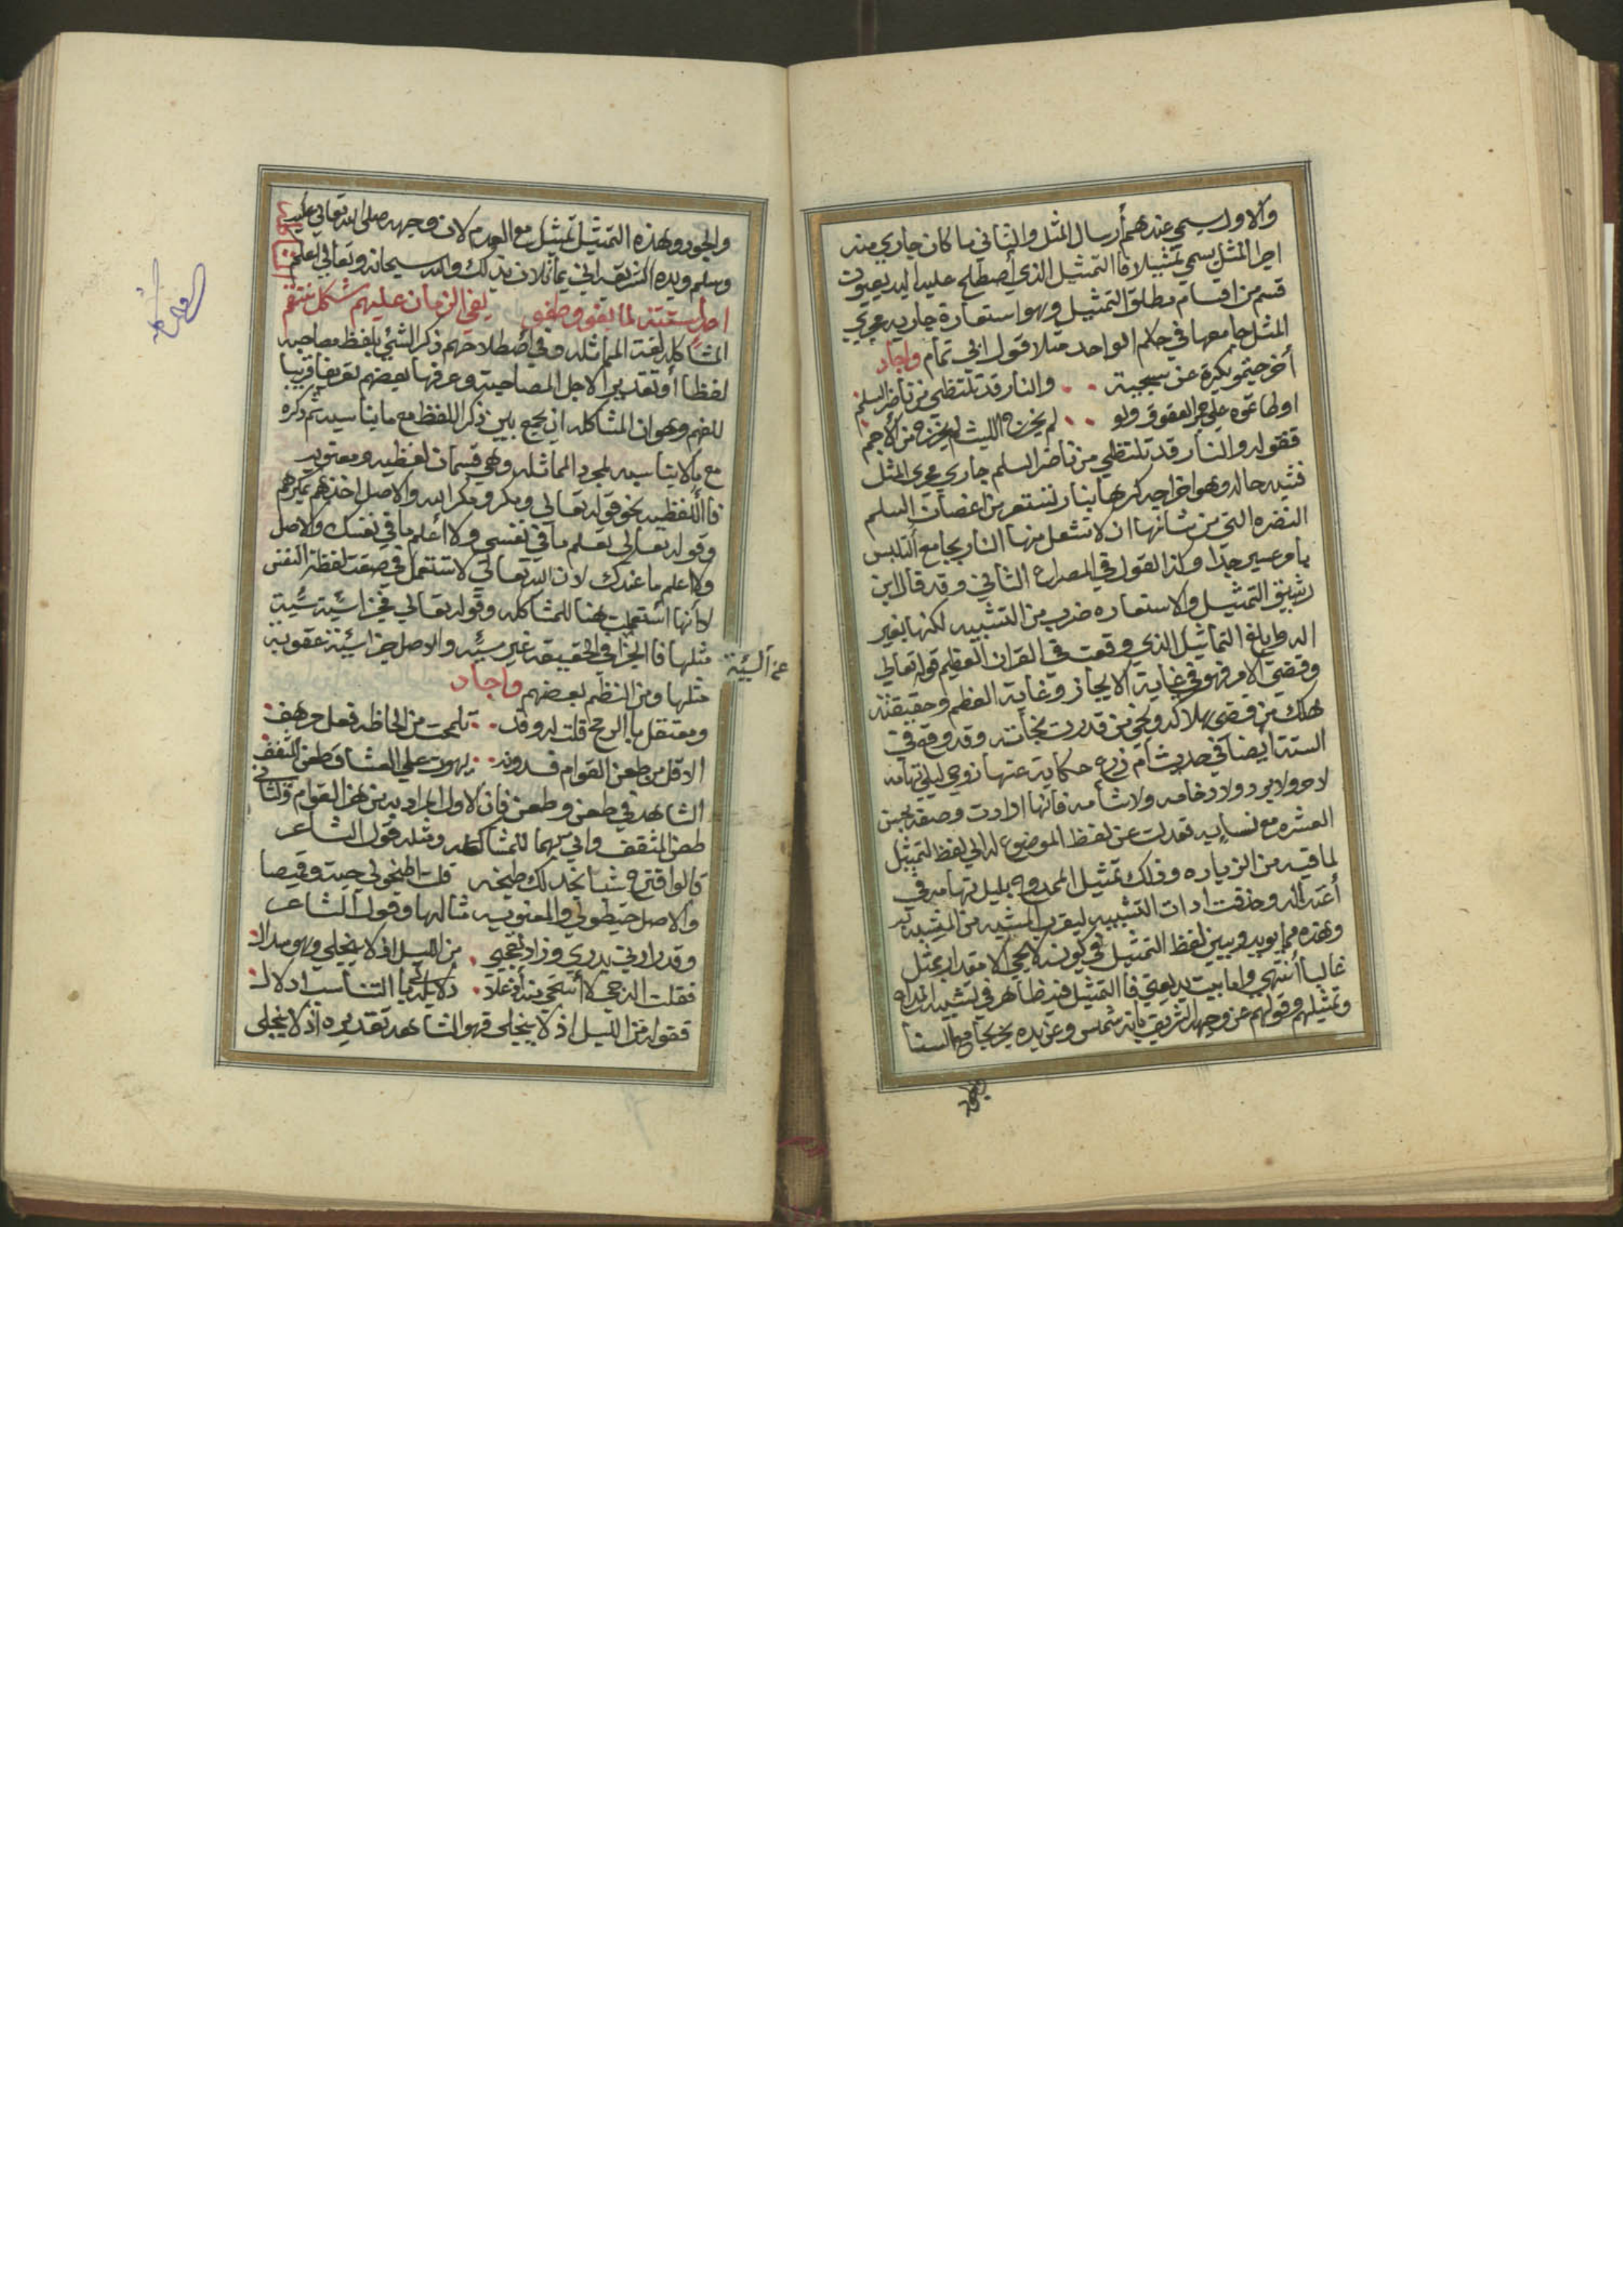 والاول يسمي عندهم أرسال المثل والثاني ما كان جاري منه
اجرا المثل يسمي تمثيلا فا التمثيل الذي أصطلح عليه البديعيون
قسم من اقسام مطلق التمثيل وهو استعارة جاريه مجري
المثل جامعها في حكم الواحد مثلا قول ابي تمام واجاد
أخرجتموه بكره عن سجيته والنار قد تلتظي من ناضر السلم
اوطاتموه علي جمر العقوق ولو لم يخرج الليث لم يخرج من الأجم
فقوله والنار قد تلتظي من ناضر السلم جاري مجري المثل
فشبه حاله وهو اخراجه كرها بنار تستعر من اغصان السلم
النضره التي من شانها ان لا تشعل منها النار بجامع التلبس
بامر عسير جدا وكذا القول في المصراع الثاني وقد قال ابن
رشيق التمثيل والاستعاره ضرب من التشبيه لكنها بغير
اله وابلغ التماثيل الذي وقعت في القران العظيم قوله تعالي
وقضي الامر فهو في غاية الايجاز وغاية العظم وحقيقته
هلك من قضي هلاكه ونجي من قدرت نجاته وقد وقع في
السنة ايضا في حديث أم زرع حكاية عنها زوجي ليلي تهامه
لا حر ولا برد ولا دخامه ولا شامه فانها ارادت وصفه بحسن
العشره مع نسايه فعدلت عن لفظ الموضوع له الي لفظ التمثيل
لما فيه من الزياده وذلك تمثيل الممدوح بليل تهامه في
أعتداله وحذفت ادات التشبيه ليقرب المشبه من المشبه به
وهذه مما يويد ويبين لفظ التمثيل في كونه لا يجي الا مقدار بمثل
غالبا أنتهي واما بيت بديعيتي فا التمثيل فيه ظاهر في تشبيه المداح
وتمثيلهم وقولهم عن وجهه الشريف بانه شمس وعن يده بحر بجامع السنا
والجود وهذه التمثيل تمثيل مع العدم لان وجهه صلي الله تعالي عليه
وسلم ويده الشريفه اني يماثلان بذلك والله سبحانه وتعالي أعلم
لما بغو وطغو بغي الزمان عليهم شكل منتقم
المشاكله لغة المماثله وفي أصطلاحهم ذكر الشئ بلفظ مصاحبه
لفظا أو تقديرا لاجل المصاحبة وعرفها بعضهم تعريفا قريبا
للفهم وهو ان المشاكله ان يجمع بين ذكر اللفظ مع ما يناسبه ثم ذكره
مع ما لا يناسبه لمجرد المماثله وهي قسمان لفظيه ومعنويه
فا اللفظيه نحو قوله تعالي ومكرو ومكر الله والاصل اخذهم بمكرهم
وقوله تعالي تعلم ما في نفسي ولا أعلم ما في نفسك والاصل
ولا اعلم ما عندك لان الله تعالي لا تستعمل في صفته لفظة النفس
لأنها أستعملت هنا للمشاكله وقوله تعالي فجزا سيئة سيئة
مثلها فا الجزا في الحقيقة غير سيئه والاصل جزا سيئة عقوبه
عن السيئة
مثلها ومن النظم بعضهم واجاد
ومعتقل با الرمح قلت له وقد تلمحت من الحاظه فعل مرهف
الاقل من طعن القوام فدونه يهون علي العشاق طعن المثقف
الشاهد في طعن وطعن فان الاول المراد به من هز القوام والثاني
طعن المثقف واتي بهما للمشاكله ومثله قول الشاعر
قالوا قترح شيا نجد لك طبخه قلت اطبخو لي جبة وقميصا
والاصل خيطو لي والمعنويه مثالها وقول الشاعر
من الليل اذ لا ينجلي وهو سدال
فقلت الدجي لا
فقوله من الليل اذ لا ينجلي فهو الشاهد تقديره اذ لا ينجلي